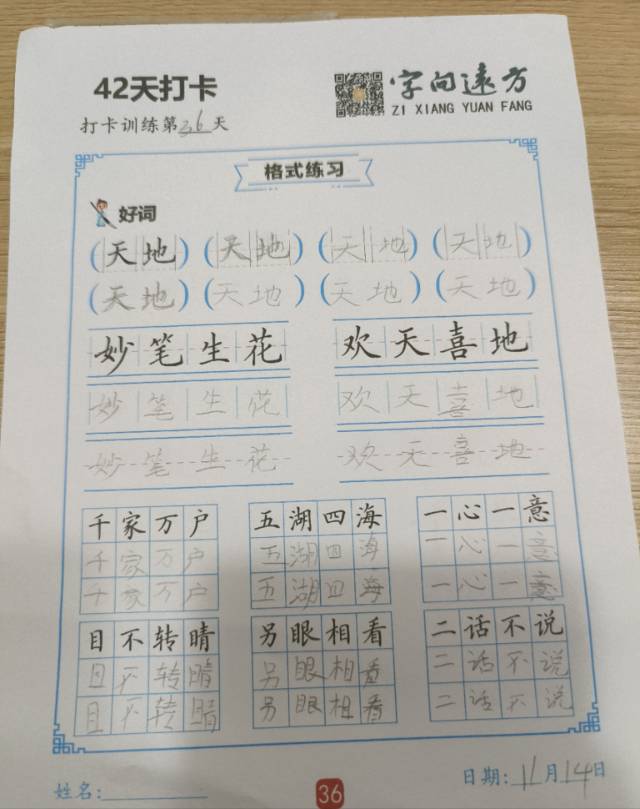 42天打卡
字向远方
ZI XIANG YUAN FANG
打卡训练第36天
格式练习
好词
(天地) (天地) (天地) (天地)
(天地) (天地) (天地) (天地)
妙笔生花 欢天喜地
妙笔生花 欢天喜地
妙笔生花 欢天喜地
千家万户 五湖四海 一心一意
千家万户 五湖四海 一心一意
千家万户 五湖四海 一心一意
目不转睛 另眼相看 二话不说
目不转睛 另眼相看 二话不说
目不转睛 另眼相看 二话不说
姓名: 36 日期:11月14日